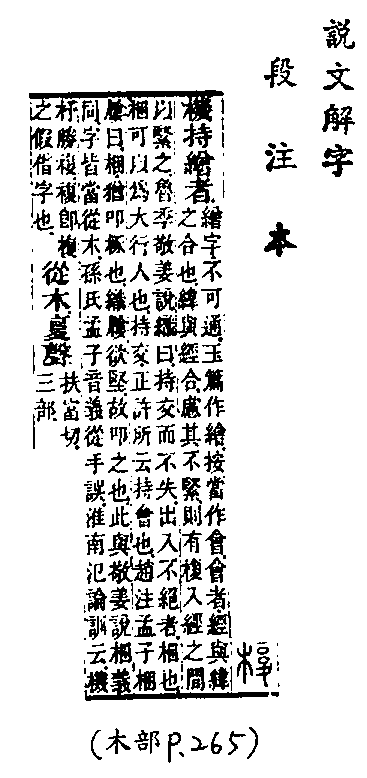 説文解字
段注本
機持繒者繒字不可通玉篇作繪按當作會會者經與緯
之合也緯與經合慮其不緊則有椱入經之間
以緊之魯季敬姜說織曰持交而不失出入不絕者梱也
梱可以爲大行人也持交正許所云持會也趙注孟子梱
屨曰梱猶叩椓也織屨欲堅故叩之也此與敬姜說梱義
同字皆當從木孫氏孟子音義從手誤淮南氾論訓云機
杼勝複複卽椱
之假借字也
從木复聲
扶富切
三部
(木部P.265)